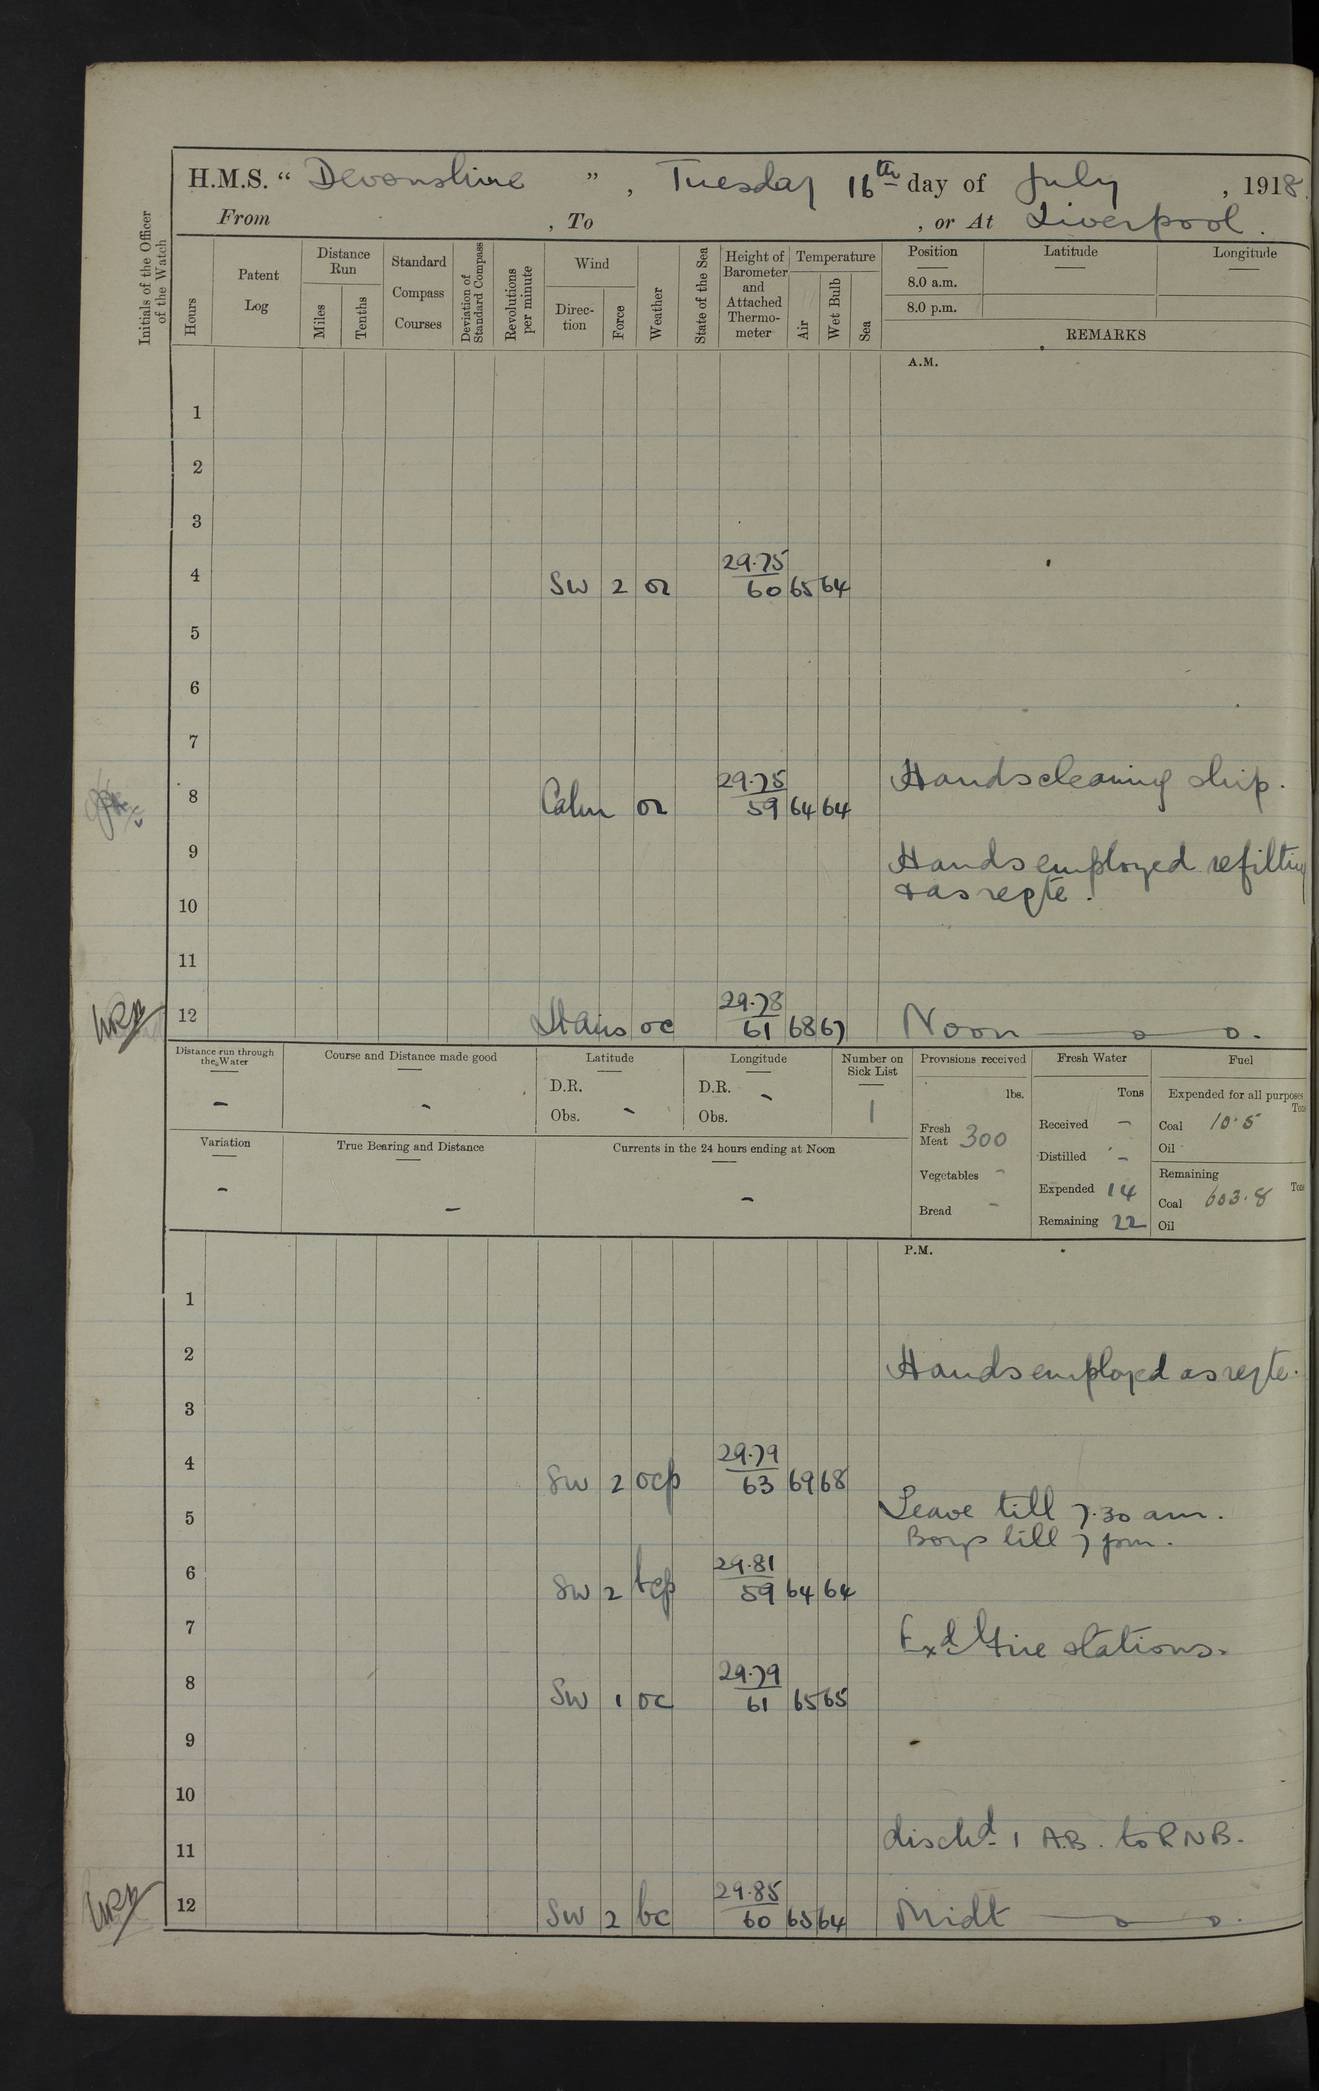 H.M.S. “ Devonshire ” , Tuesday 16th day of July , 1918.
From , To , or At Liverpool.
Initials of the Officer of the Watch
Hours
Patent Log
Distance Run
Miles
Tenths
Standard Compass Courses
Deviation of Standard Compass
Revolutions per minute
Wind
Direc- tion
Force
Weather
State of the Sea
Height of Barometer and Attached Thermo- meter
Temperature
Air
Wet Bulb
Sea
Position
8.0 a.m.
8.0 p.m.
Latitude
Longitude
REMARKS
A.M.
1
2
3
4 SW 2 or 29.75 60 65 64
5
6
7
8 Calm or 29.75 59 64 64 Hands cleaning ship.
9 Hands employed refitting
10 & as reqte.
11
12 oc 29.78 61 68 67 Noon
Distance run through the Water
–
Course and Distance made good
–
Latitude
D.R.
Obs. –
Longitude
D.R. –
Obs.
Number on Sick List
1
Variation
–
True Bearing and Distance
–
Currents in the 24 hours ending at Noon
–
Provisions received
lbs.
Fresh Meat 300
Vegetables –
Bread –
Fresh Water
Tons
Received –
Distilled –
Expended 14
Remaining 22
Fuel
Expended for all purposes
Tons
Coal 10.5
Oil
Remaining
Tons
Coal 603.8
Oil
P.M.
1
2 Hands employed as reqte.
3
4 SW 2 ocp 29.79 63 69 68
5 Leave till 7.30 am.
Boys till 7 pm.
6 SW 2 bcp 29.81 59 64 64
7 Exd Fire stations.
8 SW 1 oc 29.79 61 65 65
9
10
11 dischd 1 A.B. to RNB.
12 SW 2 bc 29.85 60 65 64 Midt